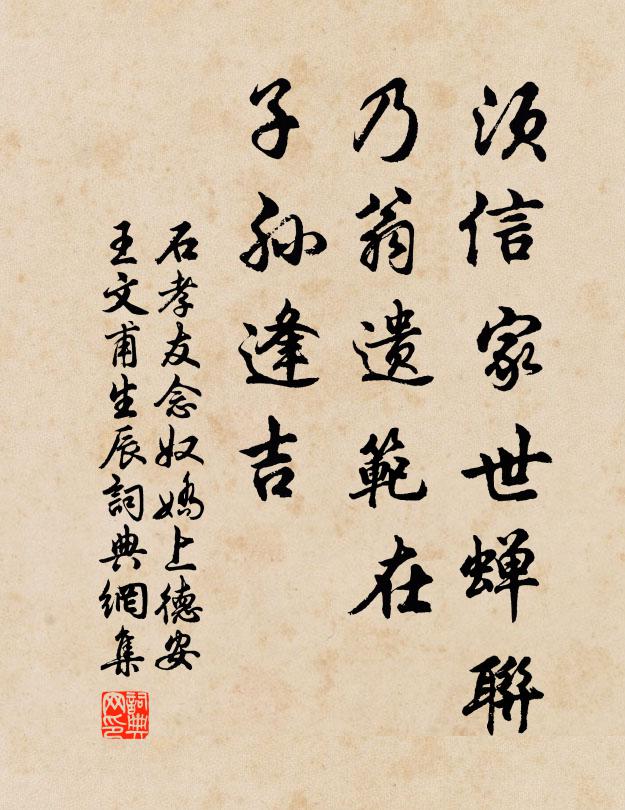 须信家世蝉聯
乃翁遗範在
子孫逢吉
石孝友念奴嬌上德安
王文甫生辰詞典網集
詞典
网印